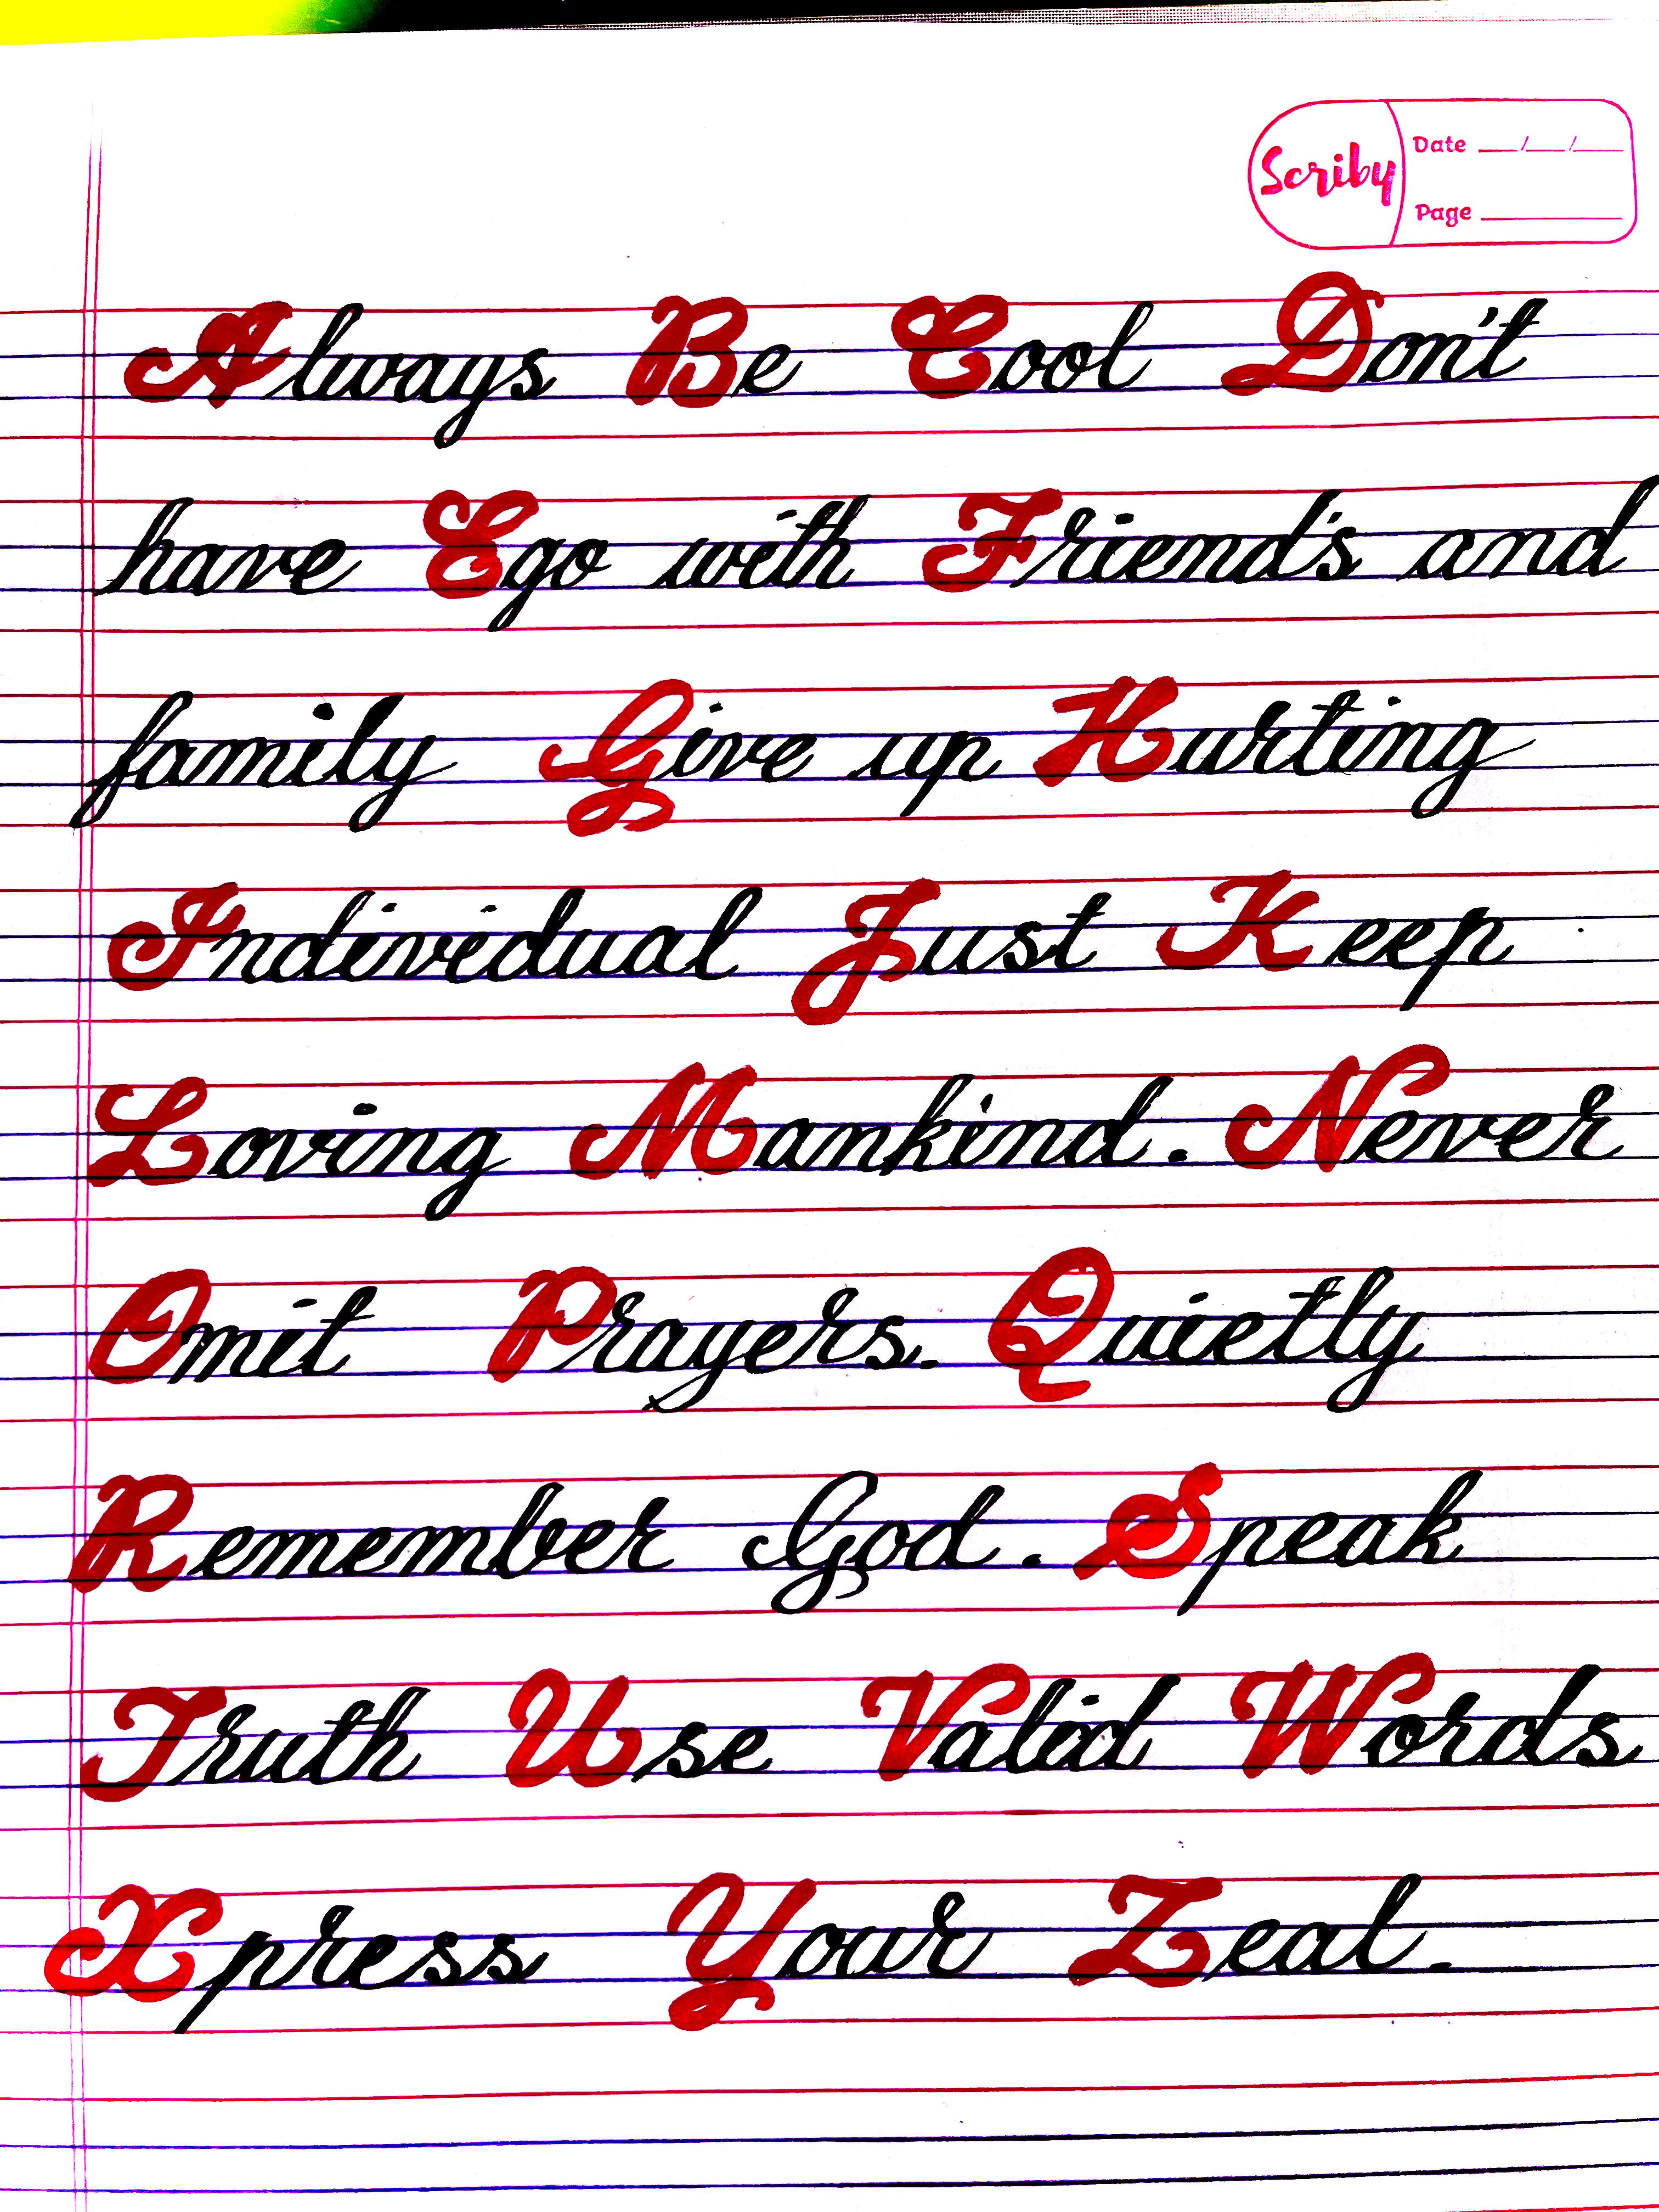 Scriby
Date __/__/__
Page ______
Always Be Cool Don't
have Ego with Friend's and
family Give up Hurting
Individual Just Keep
Loving Mankind. Never
Omit Prayers. Quietly
Remember God. Speak
Truth Use Valid Words
Xpress Your Zeal.